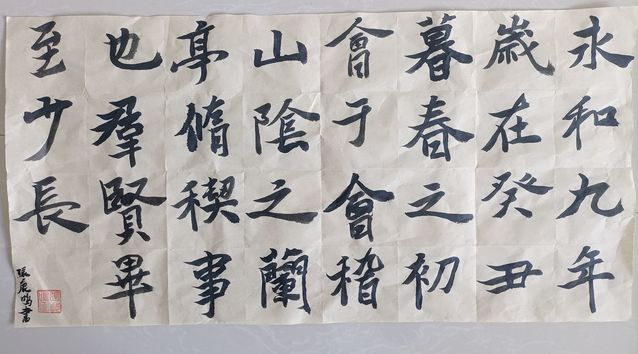 永和九年
歲在癸丑
暮春之初
會于會稽
山陰之蘭
亭脩稧事
也羣賢畢
至少長